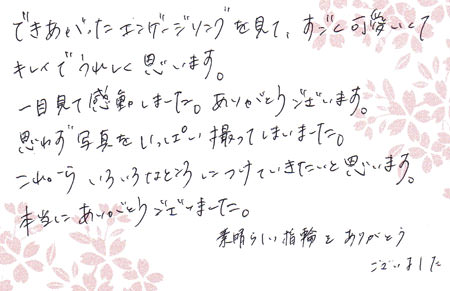 できあがったエンゲージリングを見て、すごく可愛いくて
キレイでうれしく思います。
一目見て感動しました。ありがとうございます。
思わず写真をいっぱい撮ってしまいました。
これからいろいろなところにつけていきたいと思います。
本当にありがとうございました。
素晴らしい指輪をありがとう
ございました